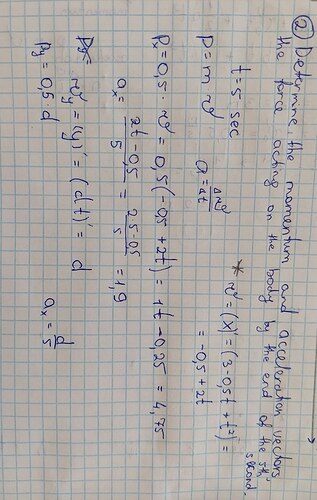 ② Determine the momentum and acceleration vectors
the force acting on the body by the end of the 5th second.
t = 5 sec
* v = (x)' = (3-0,5t + t²)' =
= -0,5 + 2t
p = m v
a = Δv/Δt
Px = 0,5 · v = 0,5(-0,5 + 2t) = 1t - 0,25 = 4,75
ax = 2t - 0,5 / 5 = 2·5-0,5 / 5 = 1,9
vy = (y)' = (dt)' = d
Py = 0,5 · d
ax = d/5